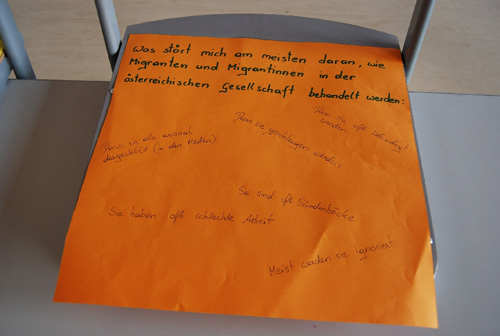 Was stört mich am meisten daran, wie
Migranten und Migrantinnen in der
österreichischen Gesellschaft behandelt werden:
Dass sie oft
werden
Dass sie geschlagen werden
Dass sie als
dargestellt (in den Medien)
Sie sind oft Sündenböcke
Sie haben oft schlechte Arbeit
Meist werden sie ignoriert